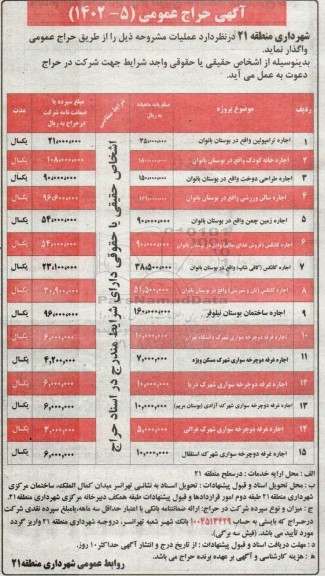 آگهی حراج عمومی (۵-۱۴۰۲)
شهرداری منطقه ۲۱ درنظردارد عملیات مشروحه ذیل را از طریق حراج عمومی
واگذار نماید.
بدینوسیله از اشخاص حقیقی یا حقوقی واجد شرایط جهت شرکت در حراج
دعوت به عمل می آید.
ردیف موضوع پروژه مبلغ پایه ماهیانه به ریال شرایط متقاضی مبلغ سپرده یا ضمانت نامه شرکت درحراج به ریال مدت
اشخاص حقیقی یا حقوقی دارای شرایط مندرج در اسناد حراج
۱ اجاره ترامپولین واقع در بوستان بانوان ۳۵،۰۰۰،۰۰۰ ۲۱،۰۰۰،۰۰۰ یکسال
۲ اجاره خانه کودک واقع در بوستان بانوان ۱۸۰،۰۰۰،۰۰۰ ۱۰۸،۰۰۰،۰۰۰ یکسال
۳ اجاره طراحی دوخت واقع در بوستان بانوان ۱۵۰،۰۰۰،۰۰۰ ۹۰،۰۰۰،۰۰۰ یکسال
۴ اجاره سالن ورزشی واقع در بوستان بانوان ۱۶۱،۰۰۰،۰۰۰ ۹۶،۶۰۰،۰۰۰ یکسال
۵ اجاره زمین چمن واقع در بوستان بانوان ۹۰،۰۰۰،۰۰۰ ۵۴،۰۰۰،۰۰۰ یکسال
۶ اجاره کانکس (فروش غذای سالم) واقع در بوستان بانوان ۹۰،۰۰۰،۰۰۰ ۵۴،۰۰۰،۰۰۰ یکسال
۷ اجاره کانکس (کافی شاپ) واقع در بوستان بانوان ۳۸،۵۰۰،۰۰۰ ۲۳،۱۰۰،۰۰۰ یکسال
۸ اجاره کانکس (نان و شیرینی) واقع در بوستان بانوان ۵۱،۵۰۰،۰۰۰ ۳۰،۹۰۰،۰۰۰ یکسال
۹ اجاره ساختمان بوستان نیلوفر ۱۶۰،۰۰۰،۰۰۰ ۹۶،۰۰۰،۰۰۰ یکسال
۱۰ اجاره غرفه دوچرخه سواری شهرک دانشگاه تهران ۱۰،۰۰۰،۰۰۰ ۶،۰۰۰،۰۰۰ یکسال
۱۱ اجاره غرفه دوچرخه سواری شهرک مسکن ویژه ۷،۰۰۰،۰۰۰ ۴،۲۰۰،۰۰۰ یکسال
۱۲ اجاره غرفه دوچرخه سواری شهرک دریا ۱۰،۰۰۰،۰۰۰ ۶،۰۰۰،۰۰۰ یکسال
۱۳ اجاره غرفه دوچرخه سواری شهرک آزادی (بوستان مریم) ۱۰،۰۰۰،۰۰۰ ۶،۰۰۰،۰۰۰ یکسال
۱۴ اجاره غرفه دوچرخه سواری شهرک فراشی ۵،۰۰۰،۰۰۰ ۳،۰۰۰،۰۰۰ یکسال
۱۵ اجاره غرفه دوچرخه سواری شهرک استقلال ۱۰،۰۰۰،۰۰۰ ۶،۰۰۰،۰۰۰ یکسال
الف : محل ارایه خدمات : درسطح منطقه ۲۱
ب : محل تحویل اسناد و قبول پیشنهادات : تحویل اسناد به نشانی تهرانسر میدان کمال الملک، ساختمان مرکزی
شهرداری منطقه ۲۱ طبقه دوم امور قراردادها و قبول پیشنهادات طبقه همکف دبیرخانه مرکزی شهرداری منطقه ۲۱.
ج: میزان و نوع سپرده شرکت در حراج: ارائه ضمانتنامه بانکی با اعتبار حداقل سه ماهه،یا مبلغ سپرده نقدی شرکت
درحراج که بایستی به حساب ۱۰۰۴۵۱۳۴۲۹ بانک شهر شعبه تهرانسر، دروجه شهرداری منطقه ۲۱ واریز گردد
مورد تأیید می باشد. (فیش سه برگی).
د: مهلت دریافت اسناد و قبول پیشنهادات : از تاریخ درج و انتشار آگهی حداکثر ۱۰ روز.
ه : هزینه کارشناسی و آگهی بر عهده برنده حراج می باشد.
روابط عمومی شهرداری منطقه ۲۱